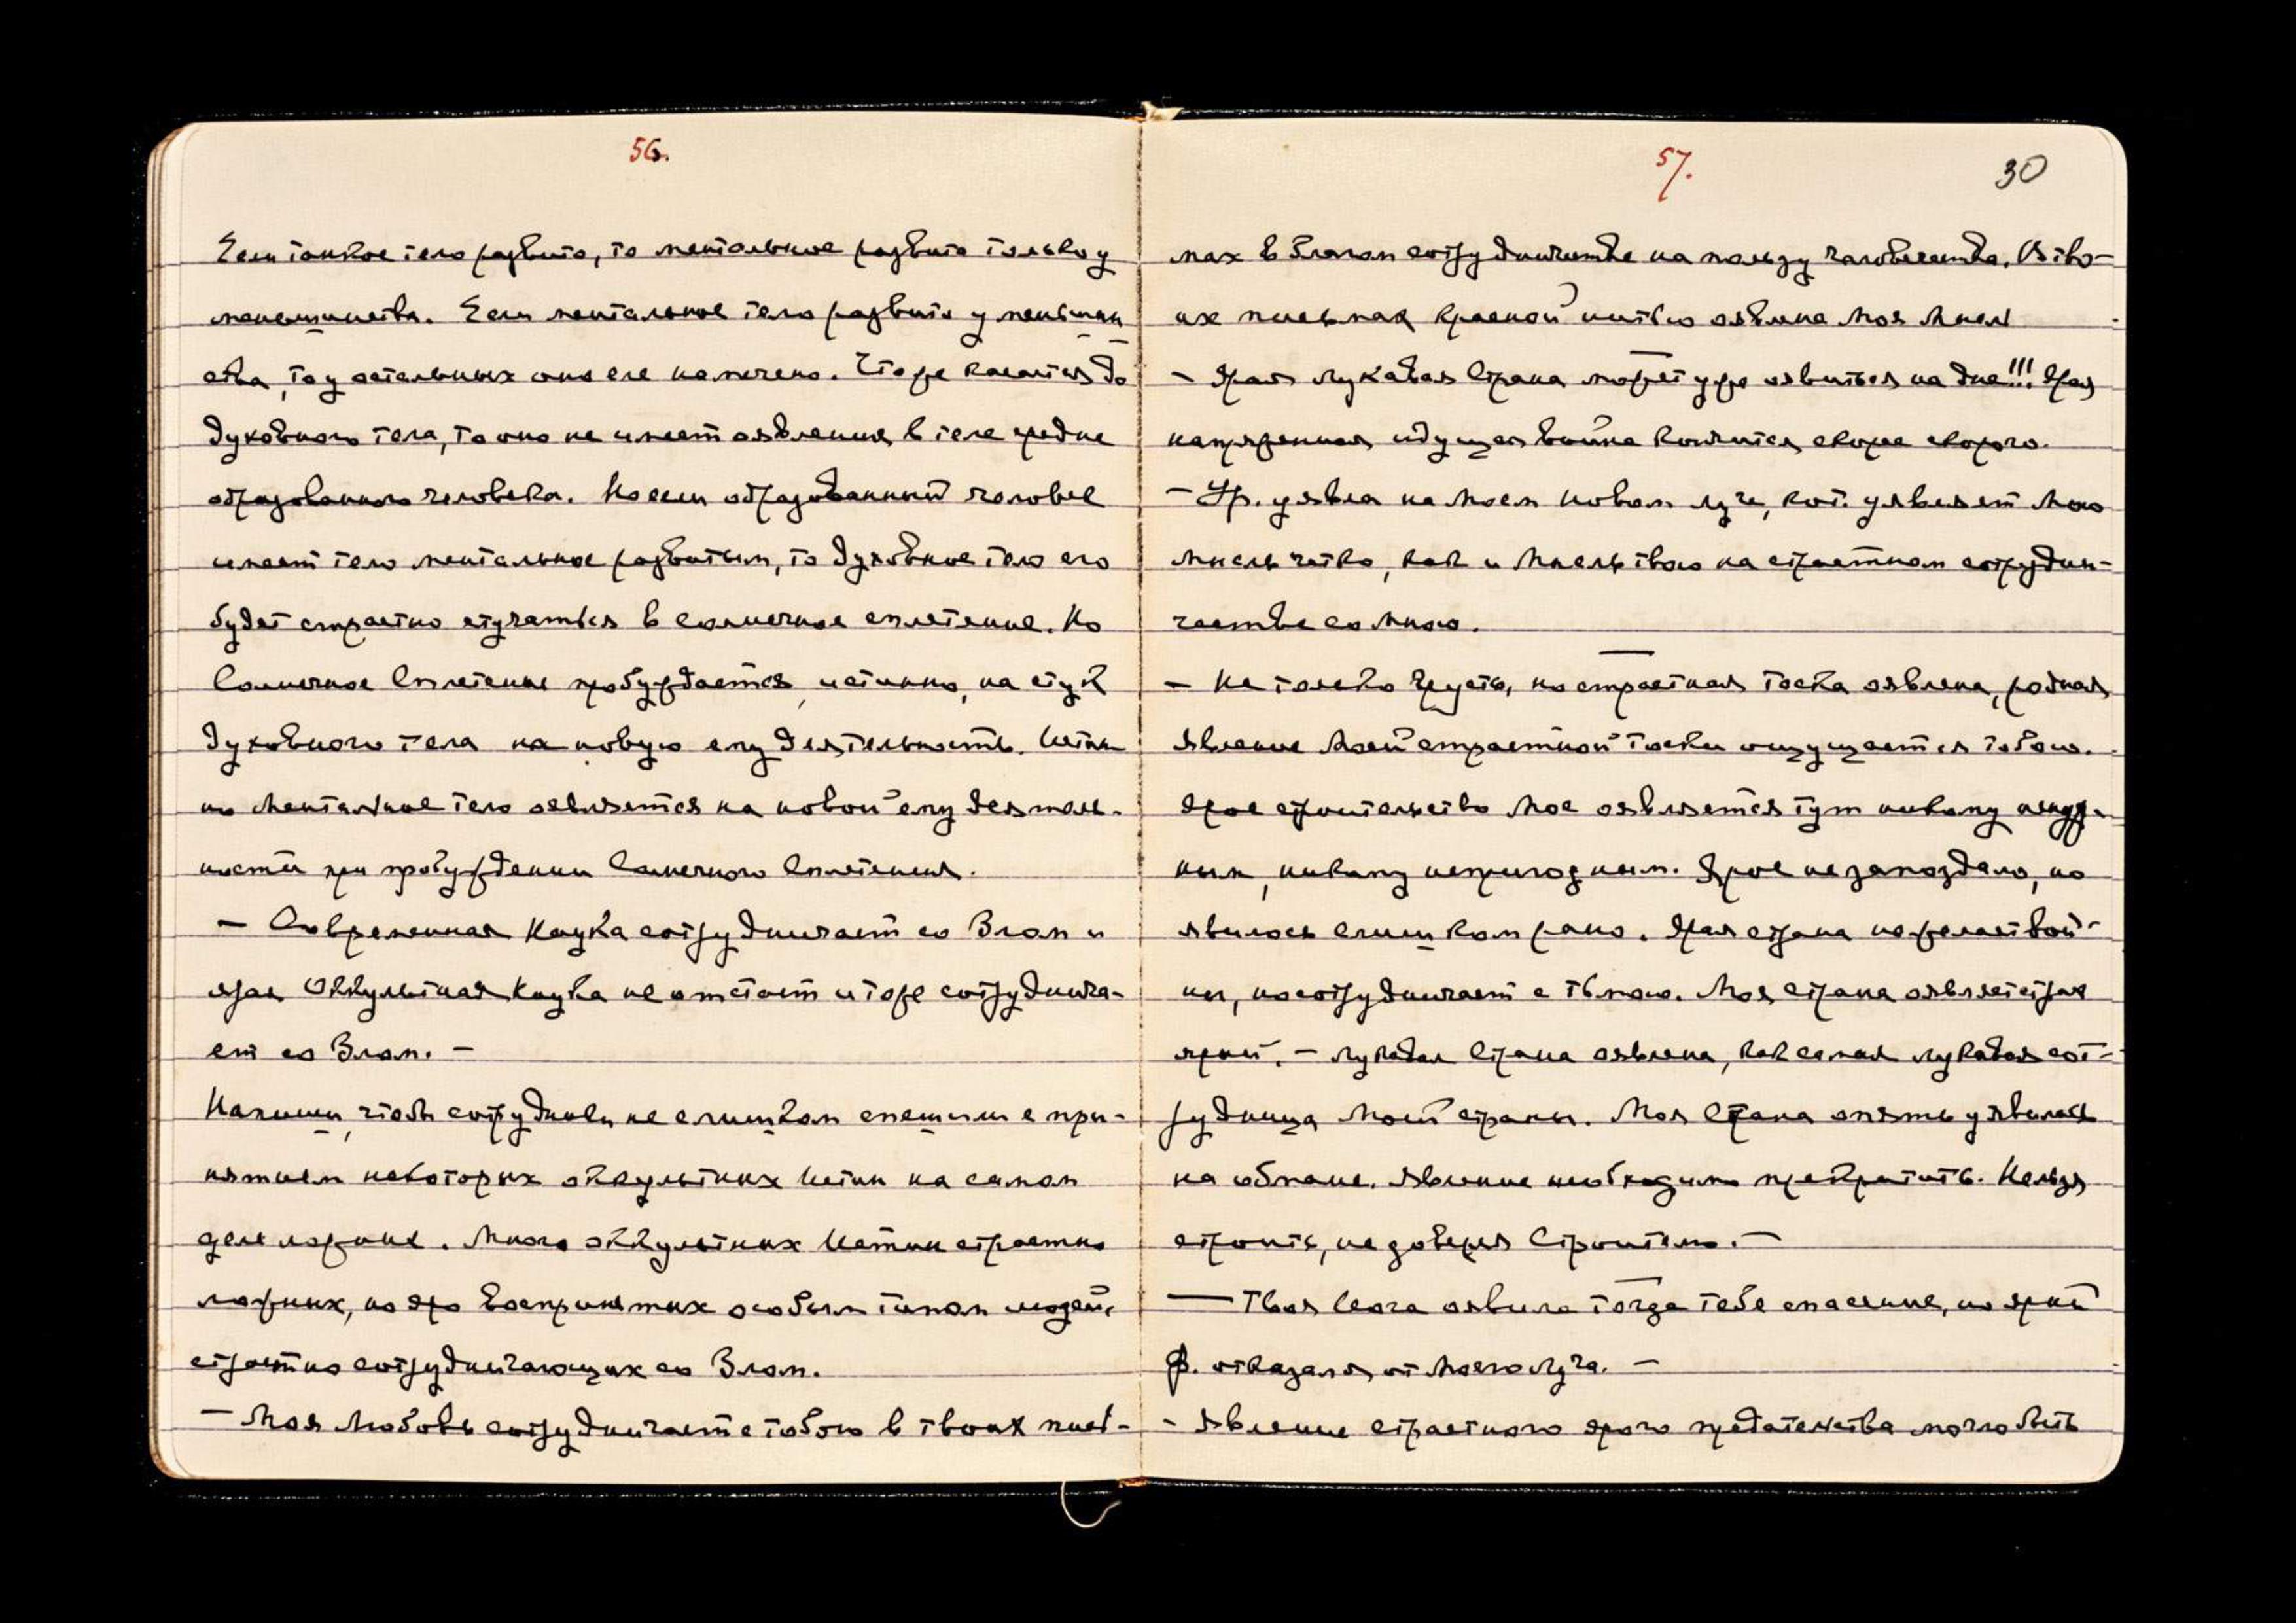 56.
Если тонкое тело развито, то ментальное развито только у
меньшинства. Если ментальное тело развито у меньшин
ства, то у остальных оно еле намечено. Что же касается до
духовного тела, то оно не имеет оявления в теле средне
образованного человека. Но если образованный человек
имеет тело ментальное развитым, то духовное тело его
будет страстно стучаться в солнечное сплетение. Но
Солнечное Сплетение пробуждается, истинно, на стук
духовного тела на новую ему деятельность. Истин
но Ментальное тело оявляется на новой ему деятель-
ности при пробуждении Солнечного Сплетения.
— Современная Наука сотрудничает со Злом и
ярая Оккультная Наука не отстает и тоже сотруднича-
ет со Злом. —
Напиши, чтобы сотрудники не слишком спешили с при-
нятием некоторых оккультных Истин на самом
деле ложных. Много оккультных Истин страстно
ложных, но яро воспринятых особым типом людей,
страстно сотрудничающих со Злом.
— Моя Любовь сотрудничает с тобою в твоих пись-
57.
30
мах в благом сотрудничестве на пользу человечества. В тво-
их письмах красной нитью оявлена Моя Мысль
— Ярая лукавая Страна может уже оявиться на дне!!! Ярая
напряженная идущая война кончится скорее скорого.
— Ур. уявла на Моем Новом луче, кот. уявляет Мою
Мысль четко, как и Мысль твою на страстном сотрудни-
честве со Мною.
— Не только грусть, но страстная тоска оявлена, родная
Явление Моей страстной тоски ощущается тобою.
Ярое строительство Мое оявляется тут никому ненуж-
ным, никому непригодным. Ярое не запоздало, но
явилось слишком рано. Ярая страна не желает вой-
ны, но сотрудничает с тьмою. Моя страна оявляет страх
ярый. — Лукавая Страна оявлена, как самая лукавая сот-
рудница Моей страны. Моя Страна опять уявилась
на обмане. Явление необходимо прекратить. Нельзя
строить, не доверяя Строителю. —
— Твоя Сила оявила тогда тебе спасение, но ярый
Ф. отказался от Моего Луча. —
— Явление страстного ярого предательства могло быть